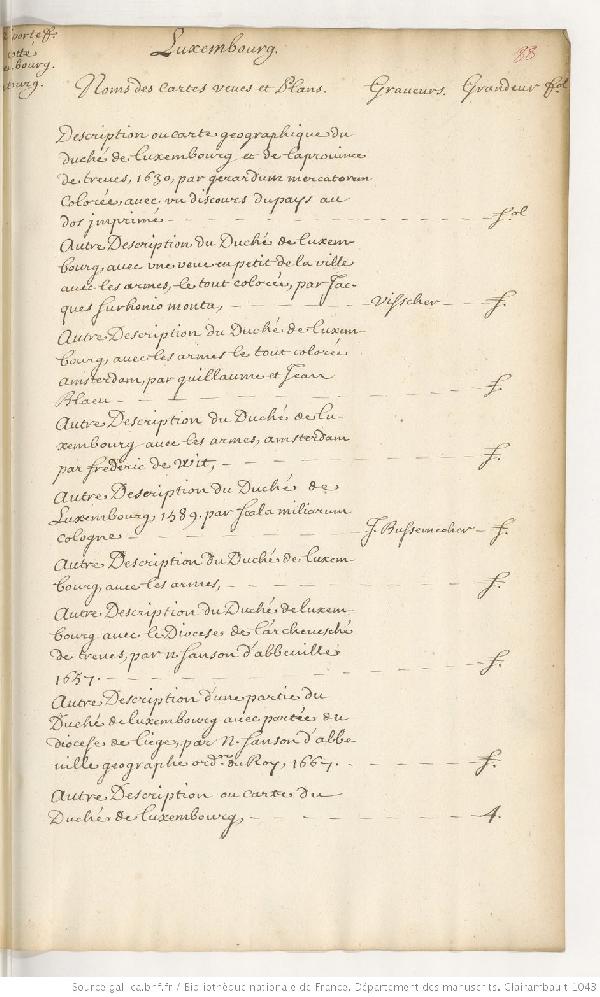 porte ff.
cotté
bourg.
Luxembourg. 88
Noms des Cartes veues et Plans. Graveurs. Grandeur
Description ou carte geographique du
duché de Luxembourg et de la province
de treves, 1630, par gerardum mercatorem
Colorée, avec vn discours du pays au
dos jmprimé - fol
Autre Description du Duché de luxem-
bourg, avec vne veue en petit de la ville
avec les armes, le tout colorée, par Jac-
ques surhonio monta, - Visscher - f.
Autre Description du Duché de luxem-
bourg, avec les armes le tout colorée
amsterdam, par guillaume et Jean
Blaeu - f.
Autre Description du Duché de lu-
xembourg avec les armes, amsterdam
par frederic de wit, - f.
Autre Description du Duché de
Luxembourg, 1589, par scala miliarum
cologne - J. Bussemecher - f.
Autre Description du Duché de luxem-
bourg, avec les armes, - f.
Autre Description du Duché de luxem-
bourg avec le Diocese de l'archevesché
de treves, par n. sanson d'abbeville
1657. - f.
Autre Description d'une partie du
Duché de luxembourg avec partie du
diocese de liege, par N. sanson d'abbe-
ville geographe ord.re du Roy, 1667. - f.
Autre Description ou carte du
Duché de luxembourg, - 4.
Source gallica.bnf.fr / Bibliothèque nationale de France. Département des manuscrits. Clairambault 1043